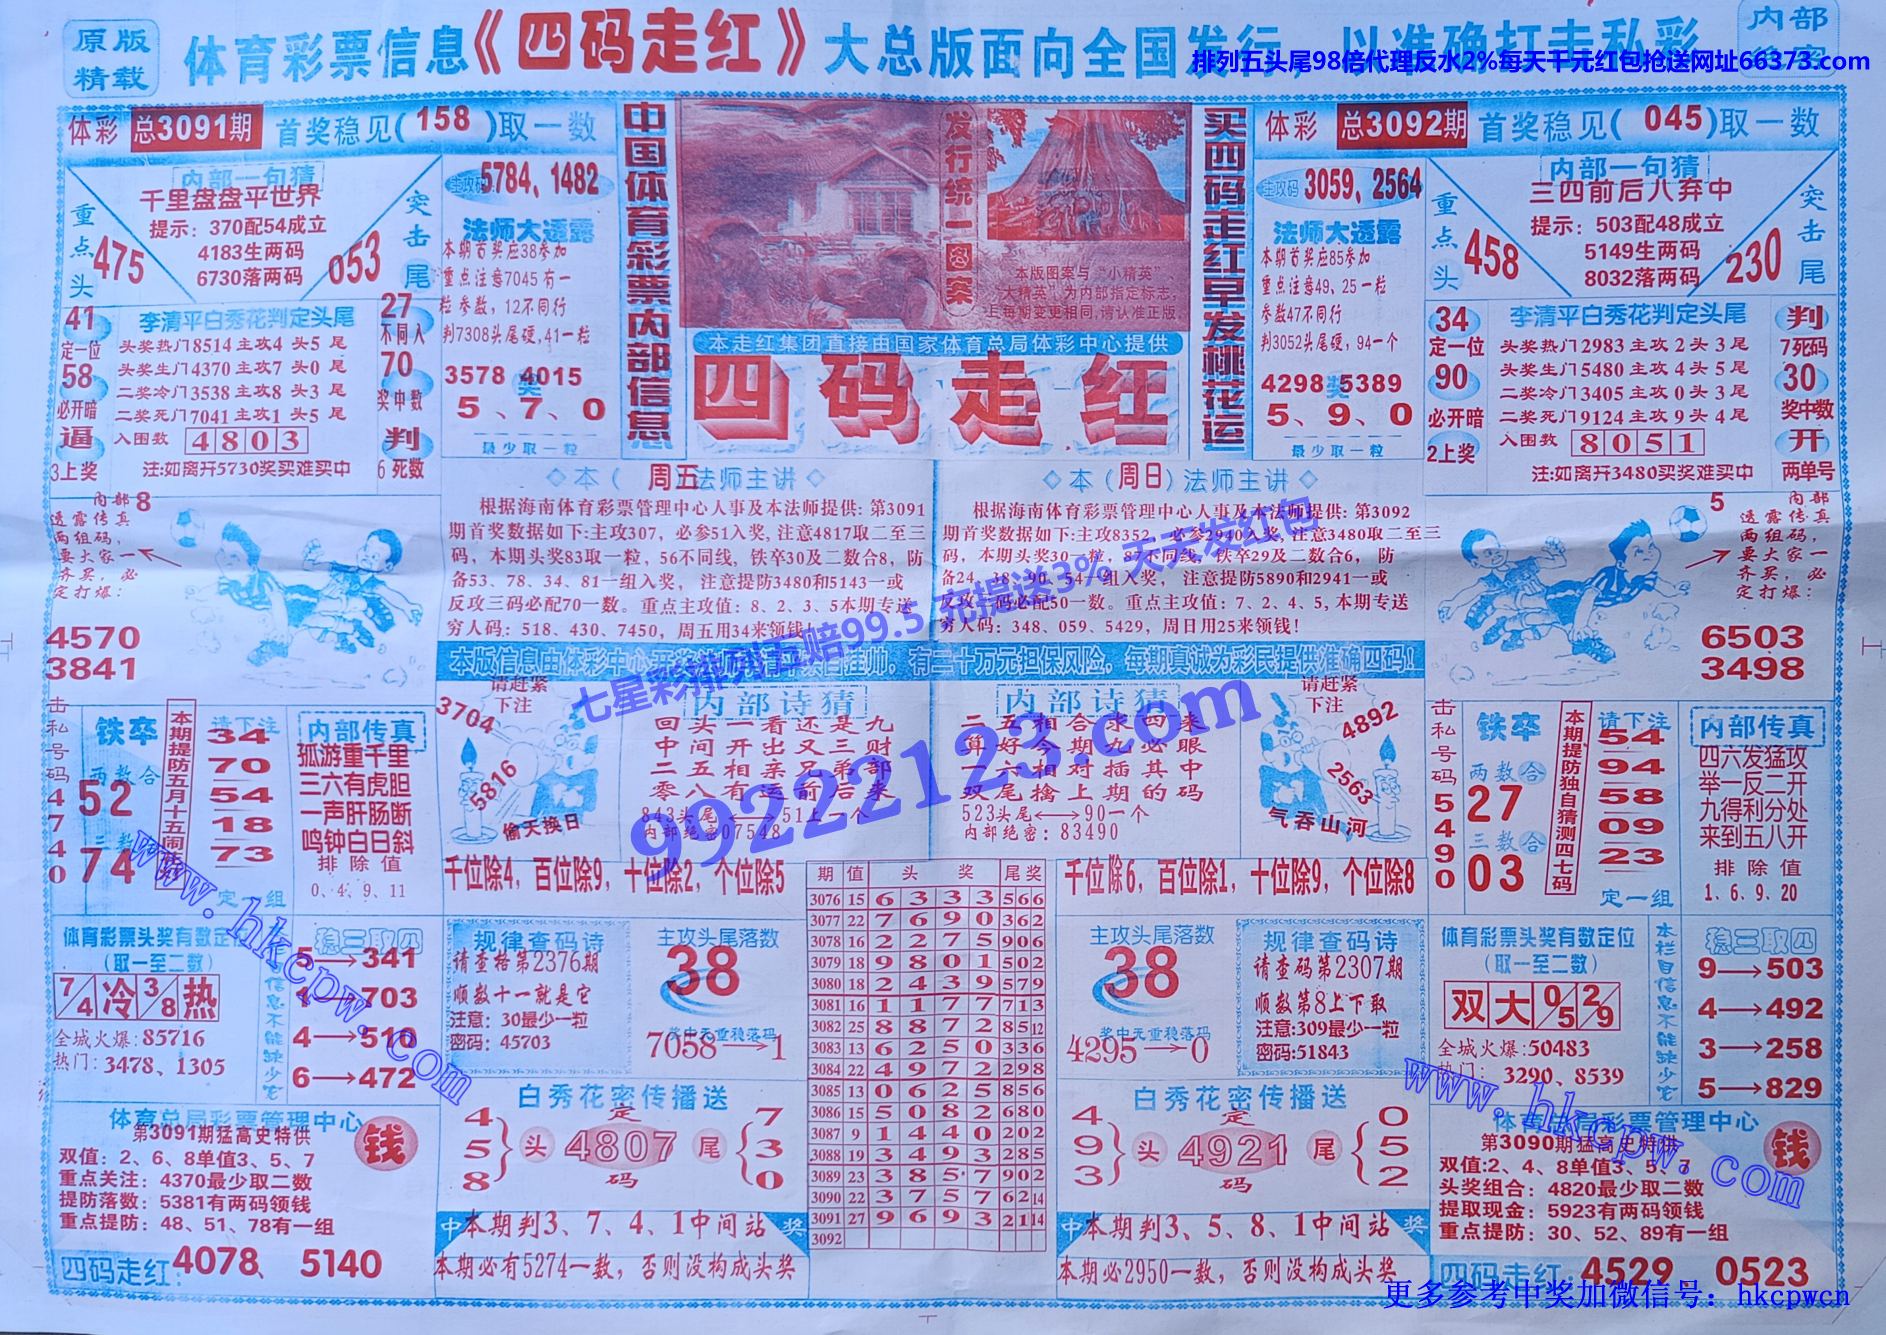 原版
精载
体育彩票信息《四码走红》大总版面向全国发行，以准确打击私彩
内部
排列五头尾98倍代理反水2%每天千元红包抢送网址66373.com
体彩 总3091期 首奖稳见(158)取一数
内部一句猜
千里盘盘平世界
提示：370配54成立
4183生两码
6730落两码
重点头
475
突击尾
053
主攻码 5784、1482
法师大透露
本期首奖应38参加
重点注意7045有一
粒参数，12不同行
判7308头尾硬,41一粒
3578奖4015
5、7、0
最少取一粒
41
定一位
58
必开暗
逼
3上奖
李清平白秀花判定头尾
头奖热门8514主攻4头5尾
头奖生门4370主攻7头0尾
二奖冷门3538主攻8头3尾
二奖死门7041主攻1头5尾
入围数 4803
注:如离开5730奖买难买中
27
不同入
70
奖中数
判
6死数
中国体育彩票内部信息
发行统一图案
本版图案与“小精英”、
“大精英”为内部指定标志，
上每期变更相同,请认准正版
本走红集团直接由国家体育总局体彩中心提供
四码走红
买四码走红早发桃花运
体彩 总3092期 首奖稳见(045)取一数
主攻码 3059、2564
法师大透露
本期首奖应85参加
重点注意49、25一粒
参数47不同行
判3052头尾硬，94一个
4298奖5389
5、9、0
最少取一粒
内部一句猜
三四前后八弃中
提示：503配48成立
5149生两码
8032落两码
重点头
458
突击尾
230
34
定一位
90
必开暗
2上奖
李清平白秀花判定头尾
头奖热门2983主攻2头3尾
头奖生门5480主攻4头5尾
二奖冷门3405主攻0头3尾
二奖死门9124主攻9头4尾
入围数 8051
注:如离开3480买奖难买中
判
7死码
30
奖中数
开
两单号
内部
透露传真
两组码，
要大家一
齐买，必
定打爆：
8
4570
3841
◇本（周五法师主讲◇
根据海南体育彩票管理中心人事及本法师提供: 第3091
期首奖数据如下:主攻307，必参51入奖, 注意4817取二至三
码，本期头奖83取一粒，56不同线, 铁卒30及二数合8，防
备53、78、34、81一组入奖， 注意提防3480和5143一或
反攻三码必配70一数。重点主攻值：8、2、3、5本期专送
穷人码：518、430、7450，周五用34来领钱！
◇本（周日）法师主讲◇
根据海南体育彩票管理中心人事及本法师提供: 第3092
期首奖数据如下:主攻8352，必参2940入奖, 注意3480取二至三
码，本期头奖30一粒，87不同线，铁卒29及二数合6， 防
备24、38、90、54一组入奖， 注意提防5890和2941一或
反攻 码必配50一数。重点主攻值：7、2、4、5, 本期专送
穷人码：348、059、5429，周日用25来领钱！
5
内部
透露传真
两组码，
要大家一
齐买，必
定打爆：
6503
3498
七星彩排列五赔99.5 充提送3% 天天发红包
99222123.com
击私号码54740
铁卒
两数合
52
三数合
74
请下注
34
70
54
18
73
定一组
内部传真
孤游重千里
三六有虎胆
一声肝肠断
鸣钟白日斜
排除值
0、4、9、11
3704
请赶紧
下注
5816
偷天换日
内部诗猜
回头一看还是九
中间开出又三财
二五相亲又弟部
零八有运前后来
843头尾⟷51上一个
内部绝密07548
内部诗猜
二五相合求四来
算好今期九必眼
一六相对插其中
双尾擒上期的码
523头尾⟷90一个
内部绝密：83490
请赶紧
下注
4892
2563
气吞山河
击私号码5490
铁卒
两数合
27
三数合
03
本期提防独自猜测四七码
请下注
54
94
58
09
23
定一组
内部传真
四六发猛攻
举一反二开
九得利分处
来到五八开
排除值
1、6、9、20
千位除4，百位除9，十位除2，个位除5
千位除6，百位除1，十位除9，个位除8
期 值 头奖 尾奖
3076 15 6333 566
3077 22 7690 362
3078 16 2275 906
3079 18 9801 502
3080 18 2439 579
3081 16 1177 713
3082 25 8872 8512
3083 13 6250 336
3084 22 4972 298
3085 13 0625 856
3086 15 5082 680
3087 9 1440 202
3088 19 3493 285
3089 23 3857 902
3090 22 3757 6214
3091 27 9693 2114
3092
体育彩票头奖有数定位
(取一至二数)
7/4 冷 3/8 热
全城火爆:85716
热门：3478、1305
稳三取四
5→341
4→703
4→510
6→472
规律查码诗
请查格第2376期
顺数十一就是它
注意：30最少一粒
密码：45703
主攻头尾落数
38
奖中无重稳落码
7058→1
主攻头尾落数
38
奖中无重稳落码
4295→0
规律查码诗
请查码第2307期
顺数第8上下取
注意:309最少一粒
密码:51843
体育彩票头奖有数定位
(取一至二数)
双 大 0/5 2/9
全城火爆:50483
热门：3290、8539
本栏目信息不能缺少它
稳三取四
9→503
4→492
3→258
5→829
体育总局彩票管理中心
第3091期猛高史特供
双值：2、6、8单值3、5、7
重点关注：4370最少取二数
提防落数：5381有两码领钱
重点提防：48、51、78有一组
钱
四码走红: 4078、5140
白秀花密传播送
4 5 8
头
定
4807
码
尾
7 3 0
中本期判3、7、4、1中间站奖
本期必有5274一数，否则没构成头奖
白秀花密传播送
4 9 3
头
定
4921
码
尾
0 5 2
中本期判3、5、8、1中间站奖
本期必2950一数，否则没构成头奖
体育总局彩票管理中心
第3090期猛高史特供
双值:2、4、8单值3、5、7
头奖组合：4820最少取二数
提取现金：5923有两码领钱
重点提防：30、52、89有一组
钱
四码走红: 4529 0523
www.hkcpw.com
www.hkcpw.com
更多参考中奖加微信号：hkcpwcn